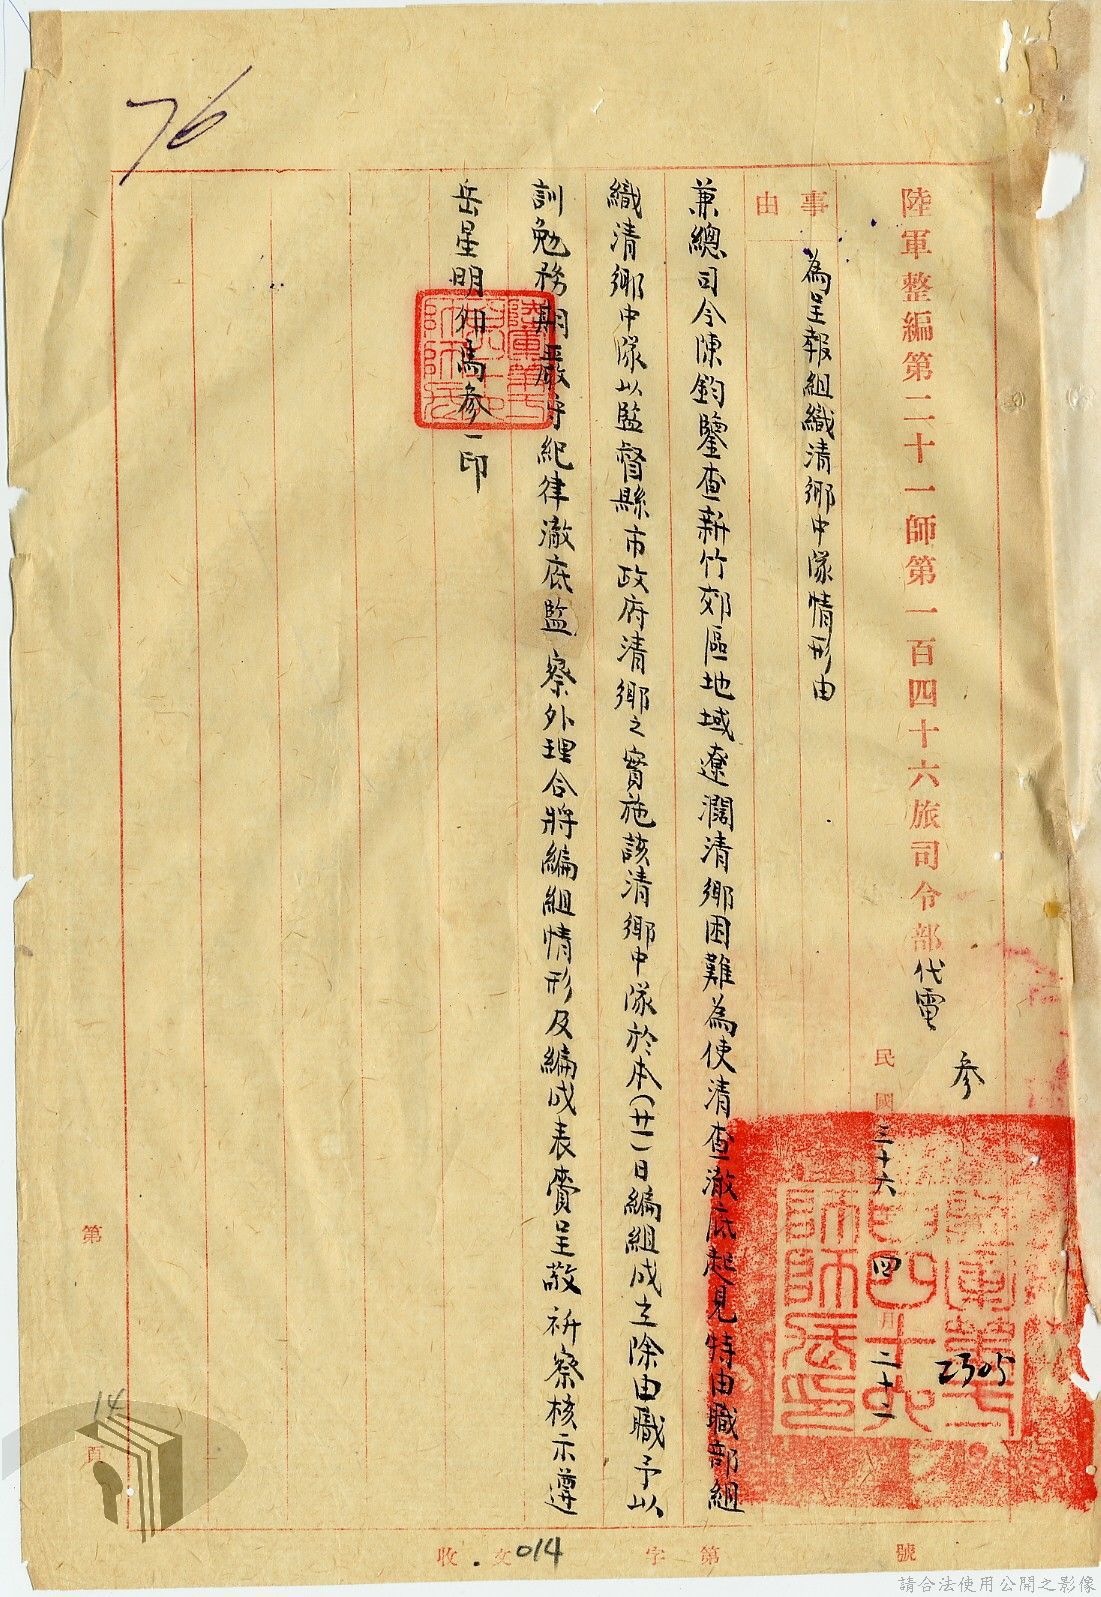 76
陸軍整編第二十一師第一百四十六旅司令部代電
參
民國三十六 四月二十二
2305
事由
為呈報組織清鄉中隊情形由
兼總司令陳鈞鑒查新竹郊區地域遼濶清鄉困難為使清查澈底起見特由職部組
織清鄉中隊以監督縣市政府清鄉之實施該清鄉中隊於本(廿一)日編組成立除由職予以
訓勉務期嚴守紀律澈底監察外理合將編組情形及編成表賷呈敬祈察核示遵
岳星明卯馬參一印
第
14
頁
收文014 字第 號
請合法使用公開之影像